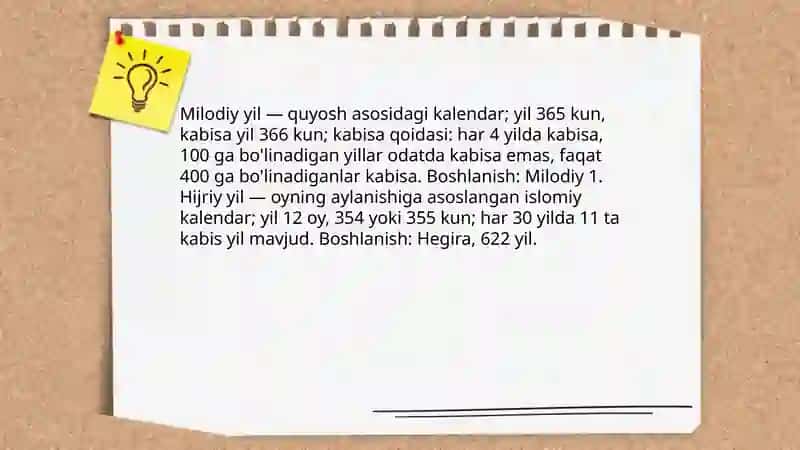 Milodiy yil — quyosh asosidagi kalendar; yil 365 kun,
kabisa yil 366 kun; kabisa qoidasi: har 4 yilda kabisa,
100 ga bo'linadigan yillar odatda kabisa emas, faqat
400 ga bo'linadiganlar kabisa. Boshlanish: Milodiy 1.
Hijriy yil — oyning aylanishiga asoslangan islomiy
kalendar; yil 12 oy, 354 yoki 355 kun; har 30 yilda 11 ta
kabis yil mavjud. Boshlanish: Hegira, 622 yil.